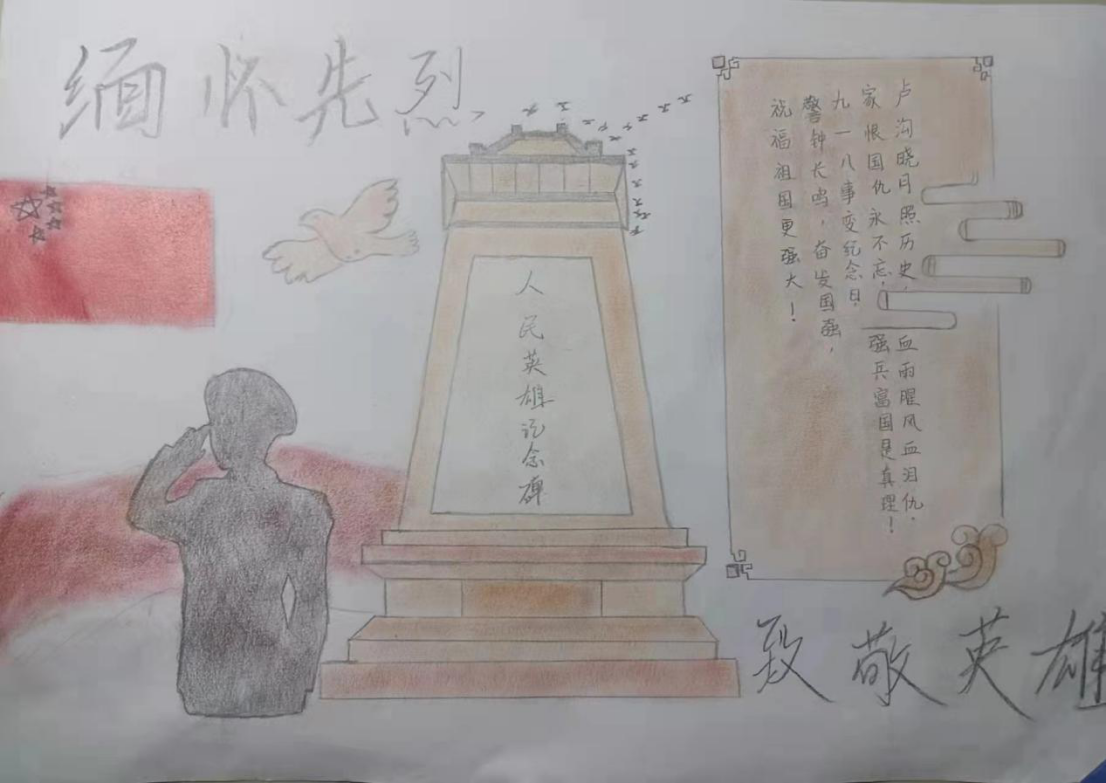 缅怀先烈
人民英雄纪念碑
卢沟晓月照历史,血雨腥风血泪仇,
家恨国仇永不忘,强兵富国是真理!
九一八事变纪念日,
警钟长鸣,奋发国强,
祝福祖国更强大!
致敬英雄